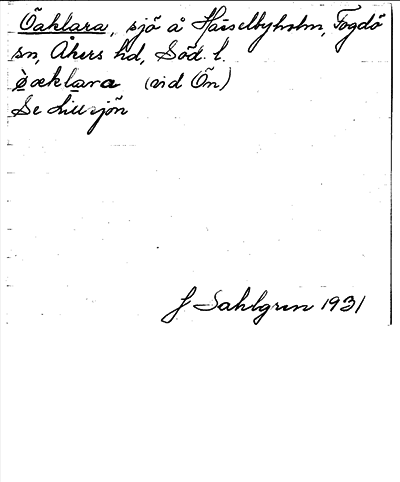 Öaklara, sjö å Hässelbyholm, Fogdö
sn, Åkers hd, Söd. l.
öaklara (vid Ön)
Se Lillsjön
J Sahlgren 1931